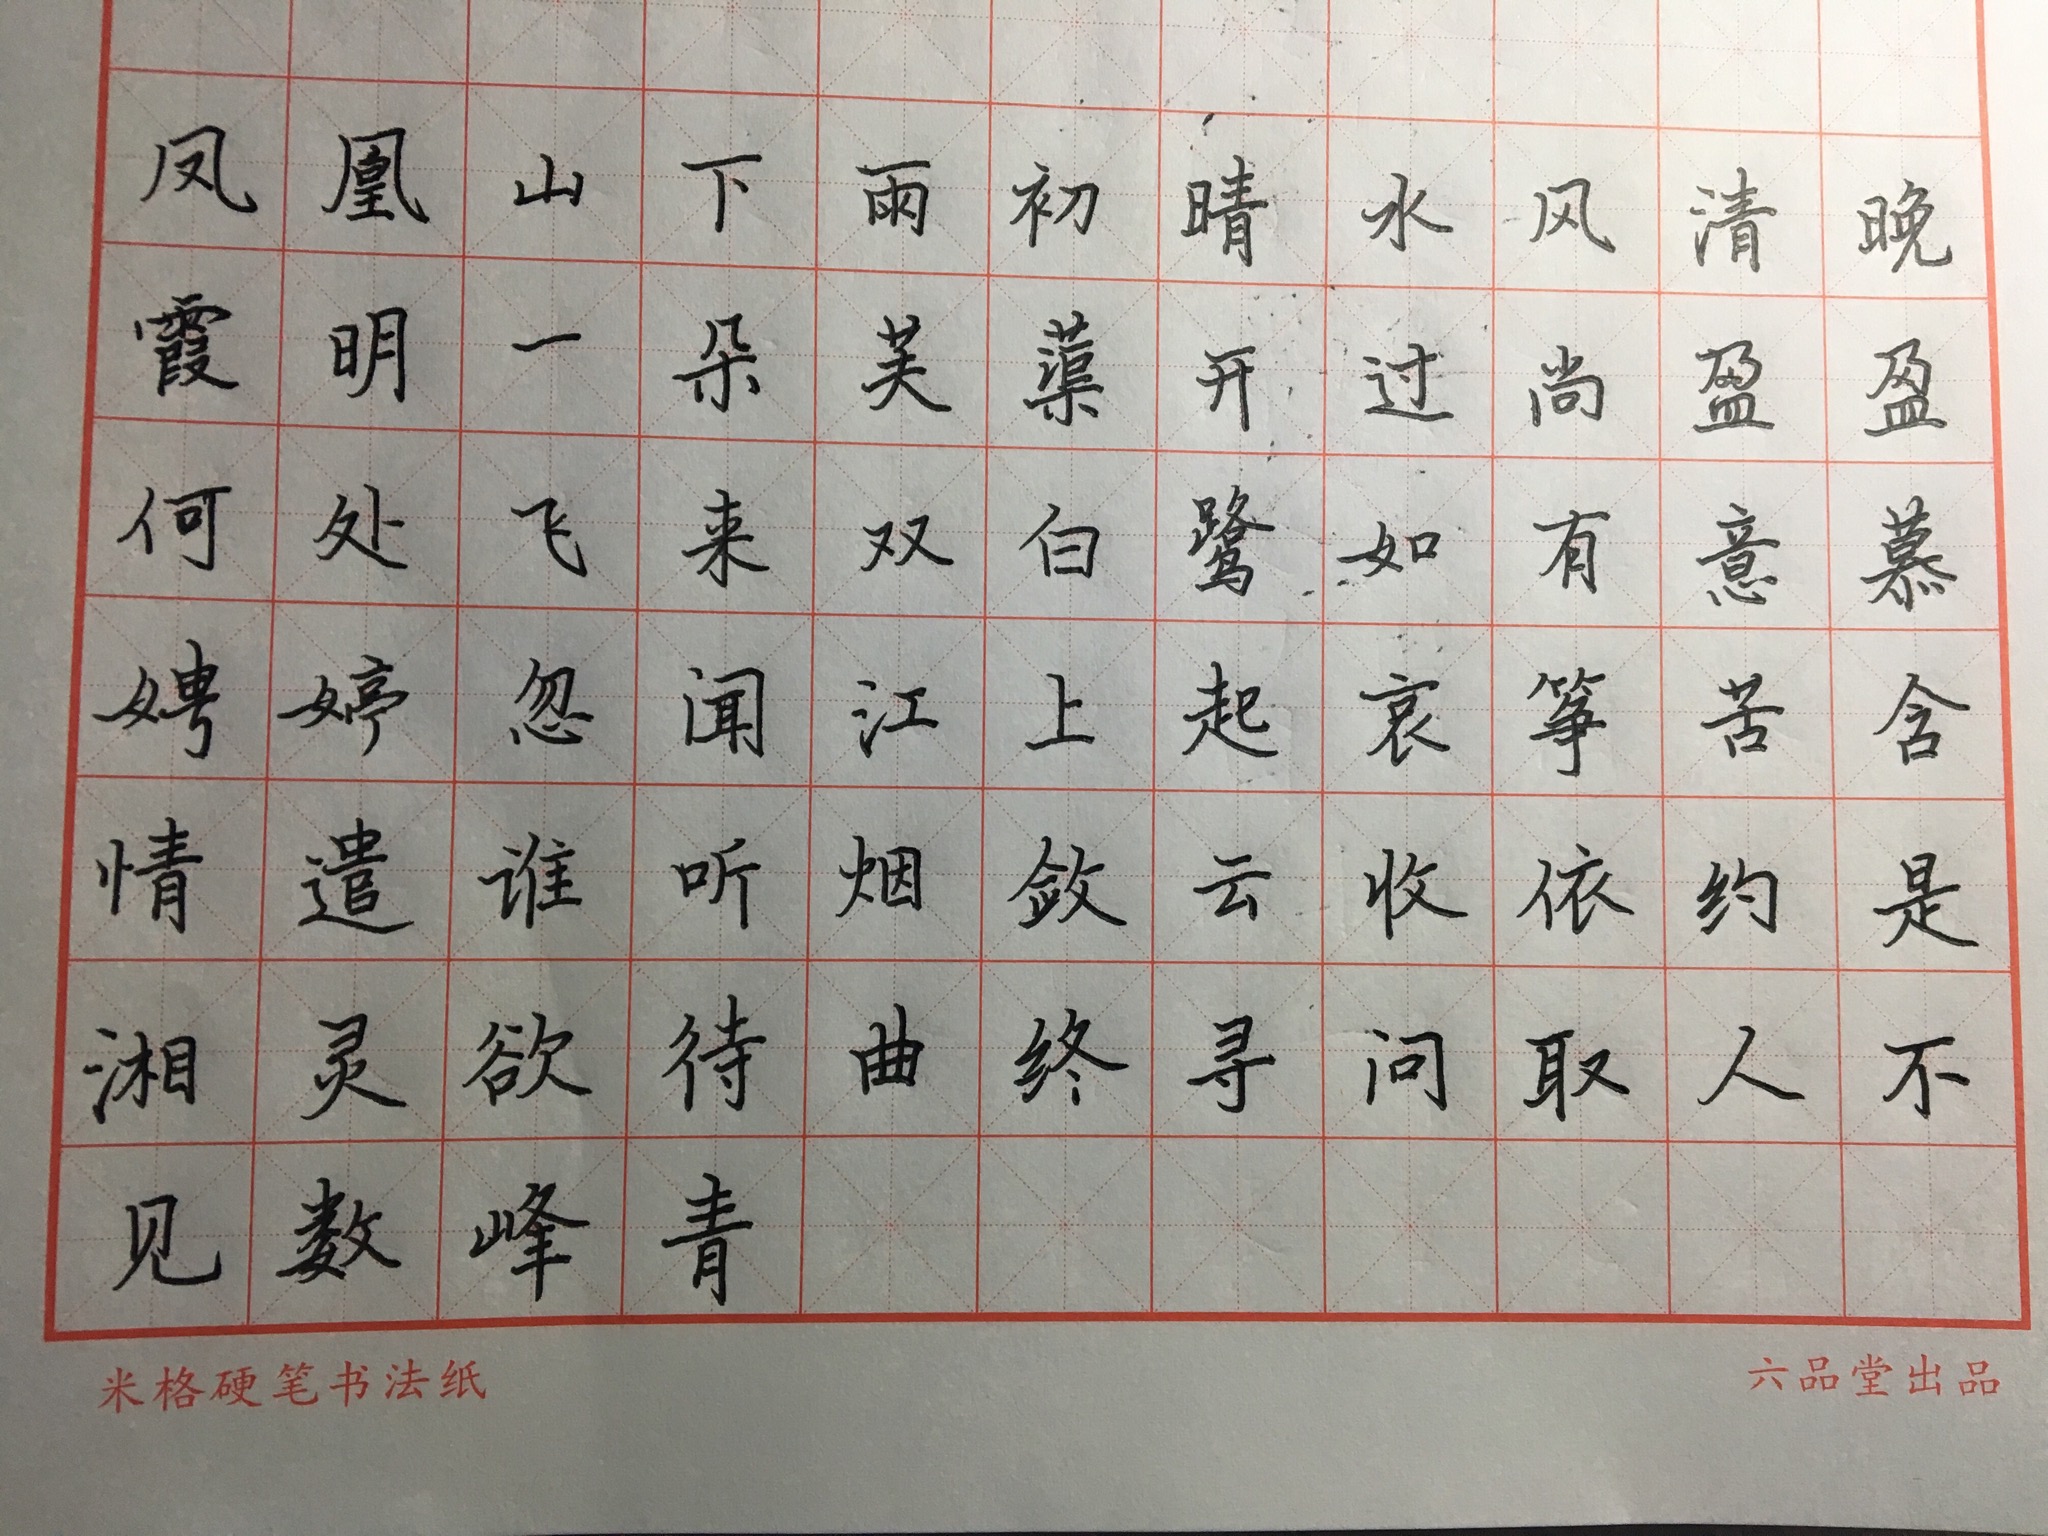 凤凰山下雨初晴水风清晚
霞明一朵芙蕖开过尚盈盈
何处飞来双白鹭如有意慕
娉婷忽闻江上起哀筝苦含
情遣谁听烟敛云收依约是
湘灵欲待曲终寻问取人不
见数峰青
米格硬笔书法纸 六品堂出品